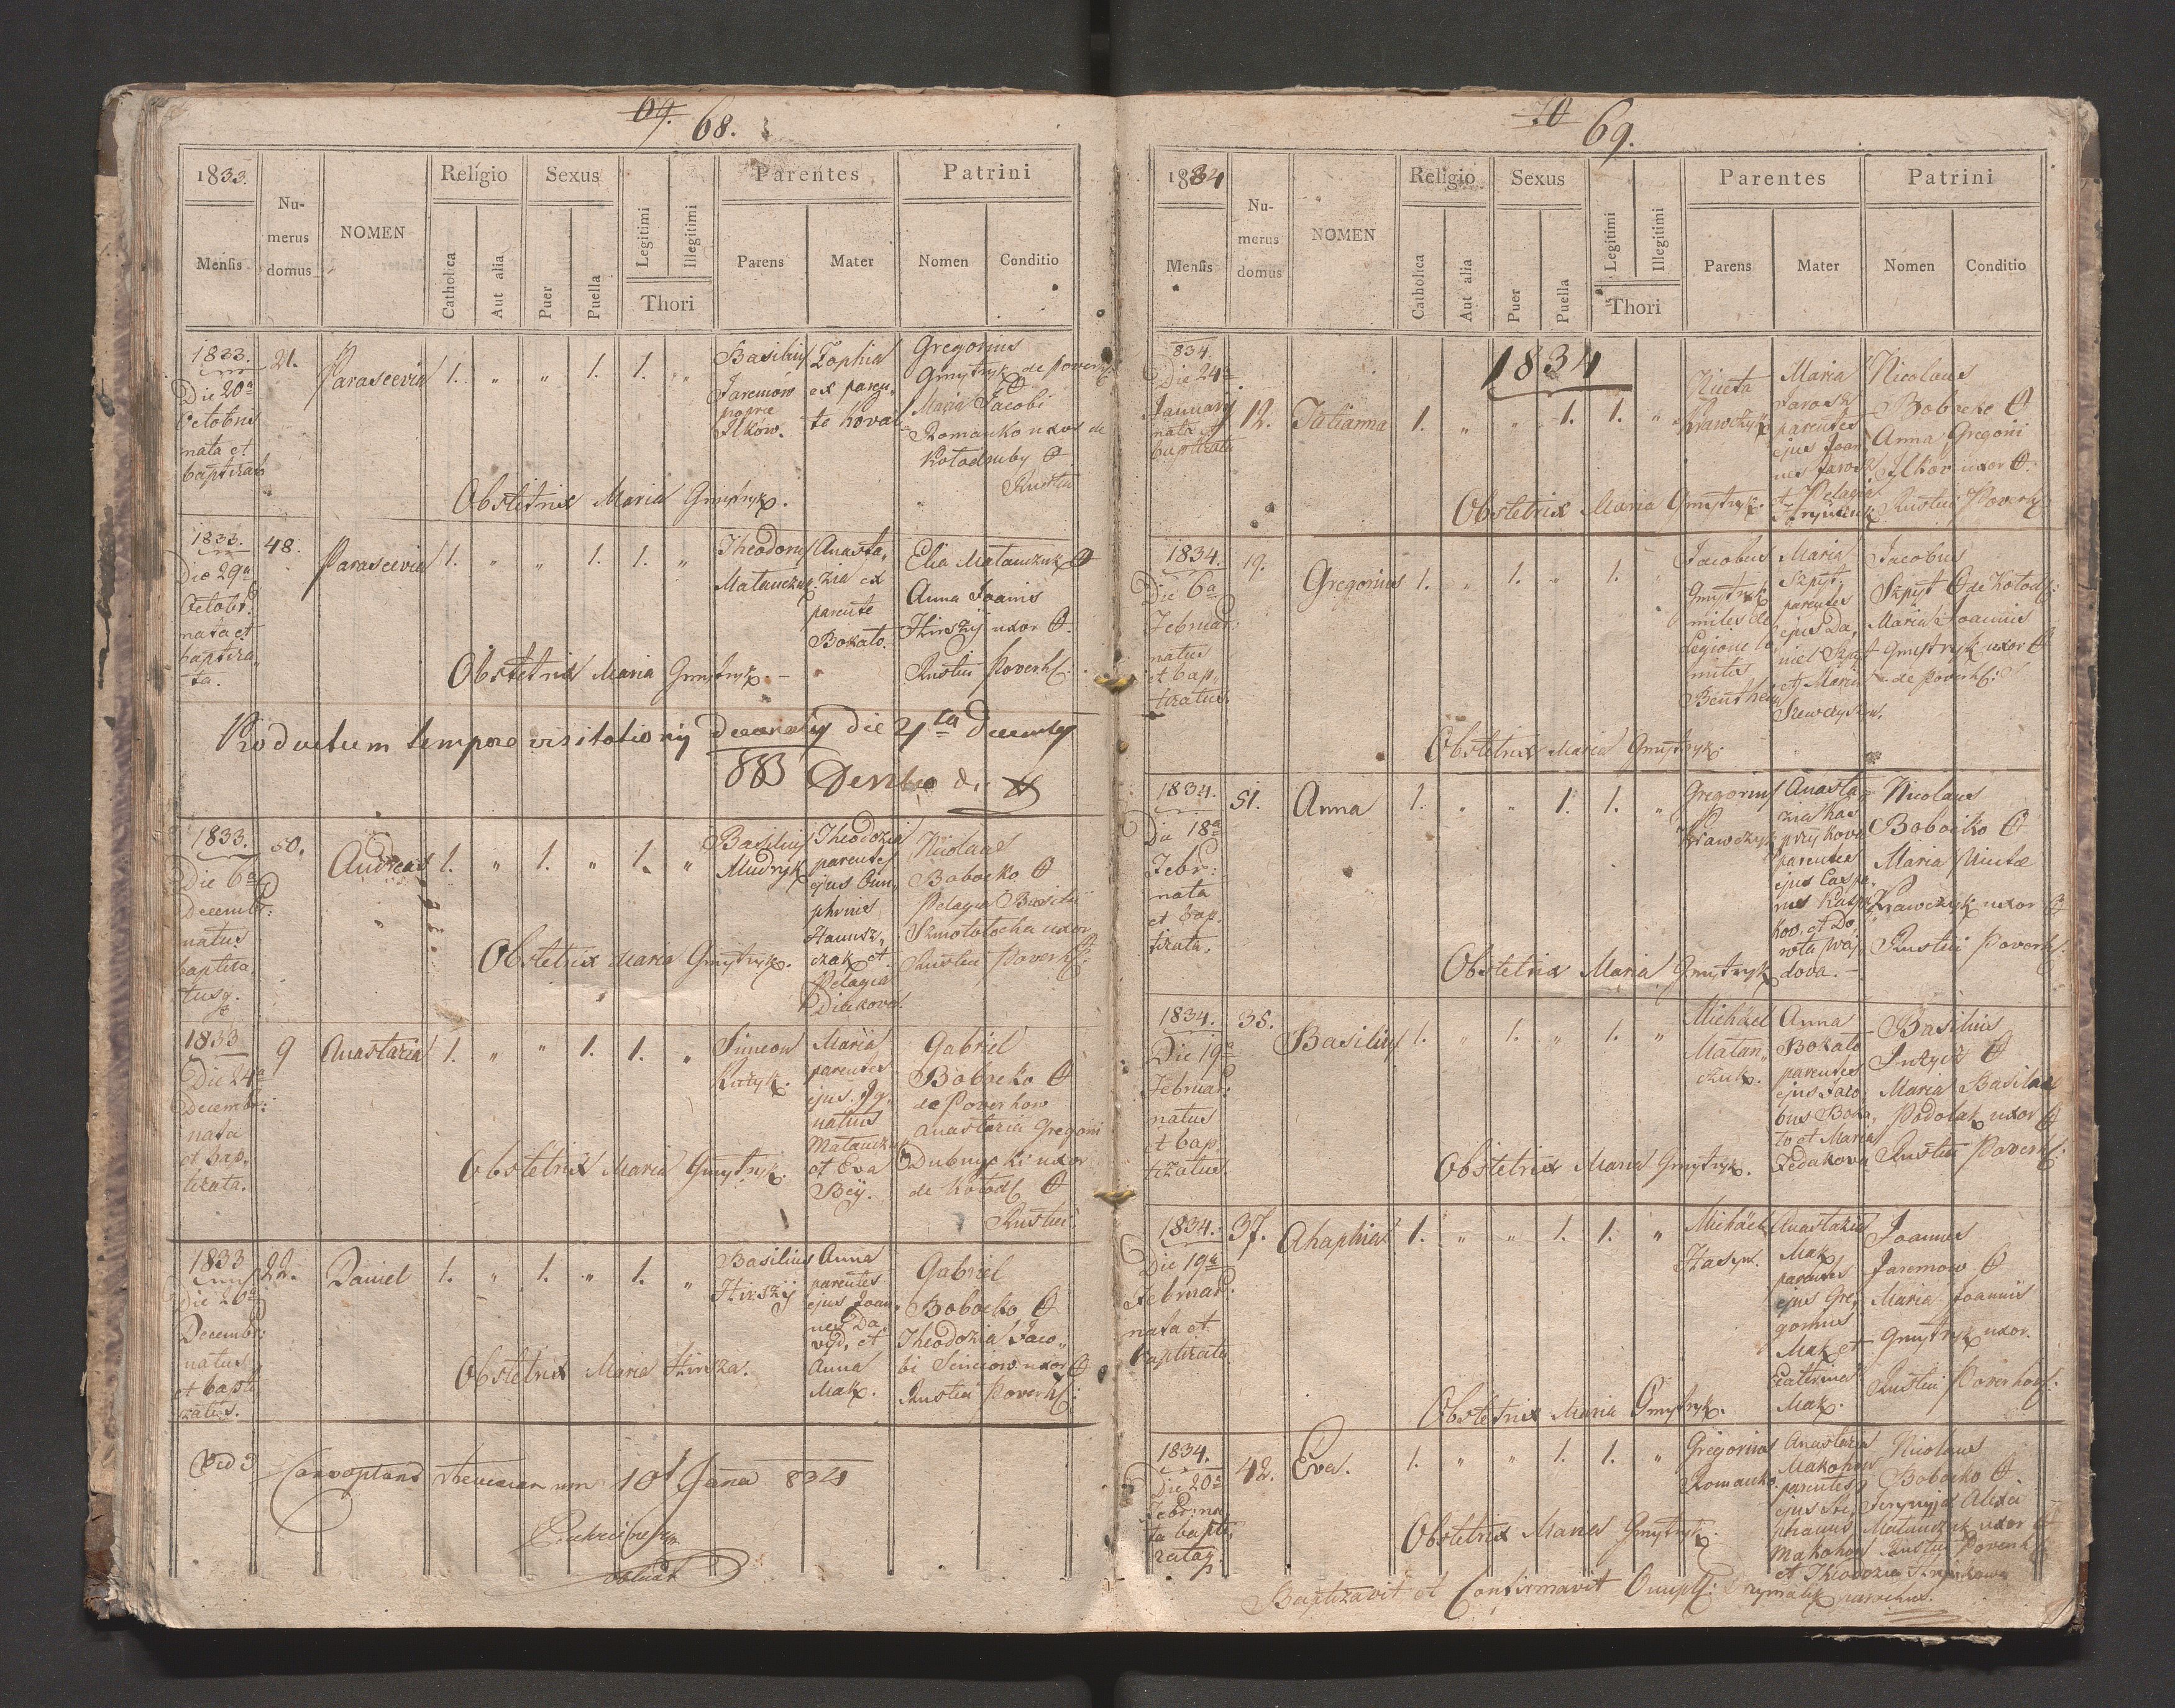 69. 68.
1833.
Mensis
Nu-
merus
domus
NOMEN
Religio
Catholica
Aut alia
Sexus
Puer
Puella
Legitimi
Illegitimi
Thori
Parentes
Parens
Mater
Patrini
Nomen
Conditio
1833.
Die 20a
Octobris
nata et
baptizata
21.
Parascevia
1. " " 1. 1. "
Basilius
Jaremow
Ilkow.
Zophia
ex paren-
te Koval
Gregorius
Gmytryk de Poverh
Maria Jacobi
Romanko uxor de
Kołodruby
Rustici
Obstetrix Maria Gmytryk.
1833.
Die 29a
Octobr:
nata et
baptiza-
ta.
48.
Parascevia
1. " " 1. 1. "
Theodorus
Matanczuk
Anasta-
zia ex
parente
Bokato.
Elia Matanczuk
Anna Joannis
Hirszij uxor
Rustici Poverh:
Obstetrix Maria Gmytryk.
Productum tempore visitationis Decanalis die 4ta Decembris
833
1833.
Die 6a
Decembr:
natus
baptiza-
tusq.
50.
Andreas
1. " 1. " 1. "
Basilius
Mudryk
Theodozia
parentes
ejus Onu-
phrius
Hanusz-
czak et
Pelagia
Diakova.
Nicolaus
Bobocko
Pelagia Basilii
Szmotolocha uxor
Rustici Poverh:
Obstetrix Maria Gmytryk.
1833
Die 24a
Decembr:
nata
et bap-
tizata.
9
Anastazia
1. " " 1. 1. "
Simeon
Kotyk.
Maria
parentes
ejus Ig-
natius
Matanczuk
et Eva
Beij.
Gabriel
Bobocko
de Poverhow
Anastazia Gregorii
Dubnycki uxor
de Kołod:
Rustici.
Obstetrix Maria Gmytryk.
1833
Die 26a
Decembr:
natus
et bapti-
zatus.
22.
Daniel
1. " 1. " 1. "
Basilius
Hirszij
Anna
parentes
ejus Joan-
nes Da-
vyd, et
Anna
Mak.
Gabriel
Bobocko
Theodozia Jaco-
bi Senciow uxor
Rustici Poverh:
Obstetrix Maria Hirsza.
70 69.
1834
Mensis
Nu-
merus
domus
NOMEN
Religio
Catholica
Aut alia
Sexus
Puer
Puella
Legitimi
Illegitimi
Thori
Parentes
Parens
Mater
Patrini
Nomen
Conditio
1834
834.
Die 24a
January
nata et
baptizata
12.
Tatianna
1. " " 1. 1. "
Niceta
Krawczyk
Maria
Jarosz
parentes
ejus Joan-
nes Jarosz
et Pelagia
Nicolaus
Bobocko
Anna Gregorii
Ilkow uxor
Rustici Poverh:
Obstetrix Maria Gmytryk.
1834.
Die 6a
Februar:
natus
et bap-
tizatus.
19.
Gregorius
1. " 1. " 1. "
Jacobus
Gmytryk
miles de
Legione Co-
mitis
Bentheim
Maria
Szpyt,
parentes
ejus Da-
niel Szpyt
et Maria
Jacobus
Szpyt de Kołod:
Maria Joannis
Gmytryk uxor
de Poverh:
Obstetrix Maria Gmytryk.
1834.
Die 18a
Febr:
nata
et bap-
tizata.
51.
Anna
1. " " 1. 1. "
Gregorius
Krawczyk
Anasta-
zia Kas-
przykova
parentes
ejus Caspa-
rus Kaspr-
kow. et Do-
rota Waj-
dova.
Nicolaus
Bobocko
Maria Nicetae
Krawczyk uxor
Rustici Poverh:
Obstetrix Maria Gmytryk
1834.
Die 19a
Februar:
natus
et bap
tizatus.
35.
Basilius
1. " 1. " 1. "
Michäel
Matan-
czuk.
Anna
Bokato
parentes
ejus Jaco-
bus Boka-
to et Maria
Fedakova
Basilius
Maria Basilii
Podolak uxor
Rustici Poverh:
Obstetrix Maria Gmytryk.
1834.
Die 19a
Februar:
nata et
baptizata
37.
Ahaphia
1. " " 1. 1. "
Michäel
Hasyn.
Anastazia
Mak
parentes
ejus Gre-
gorius
Mak et
Catherina
Mak.
Joannes
Jaremow
Maria Joannis
Gmytryk uxor.
Rustici Poverhow:
Obstetrix Maria Gmytryk.
1834.
Die 20a
Febr: na-
ta bapti-
zataq.
42.
Eva.
1. " " 1. 1. "
Gregorius
Romanko.
Anastazia
Makohon
parentes
ejus Ste-
phanus
Makohon
et Theodozia
Nicolaus
Bobocko
Alexii
Matanczuk uxor
Rustici Poverh:
Obstetrix Maria Gmytryk
Baptizavit et Confirmavit Onuph: Krymalik parochus.